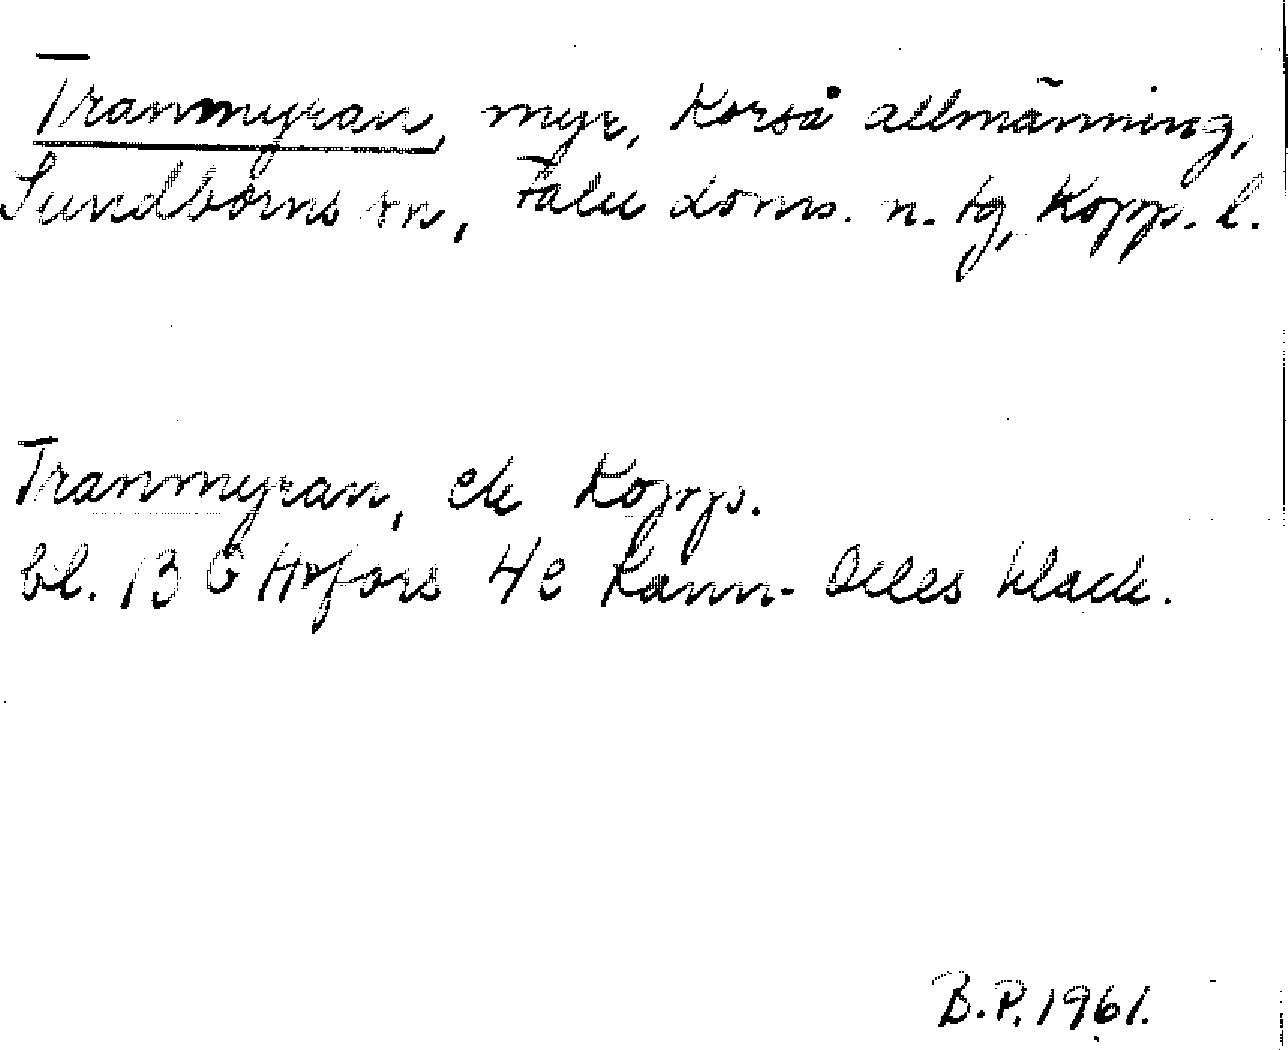 Tranmyran, myr, Korså allmänning,
Sundborns sn, Falu doms. n. tg, Kopp. l.
Tranmyran, ek Kopp.
bl. 13 G Hofors 4 e Kann- Olles klack.
B.P. 1961.